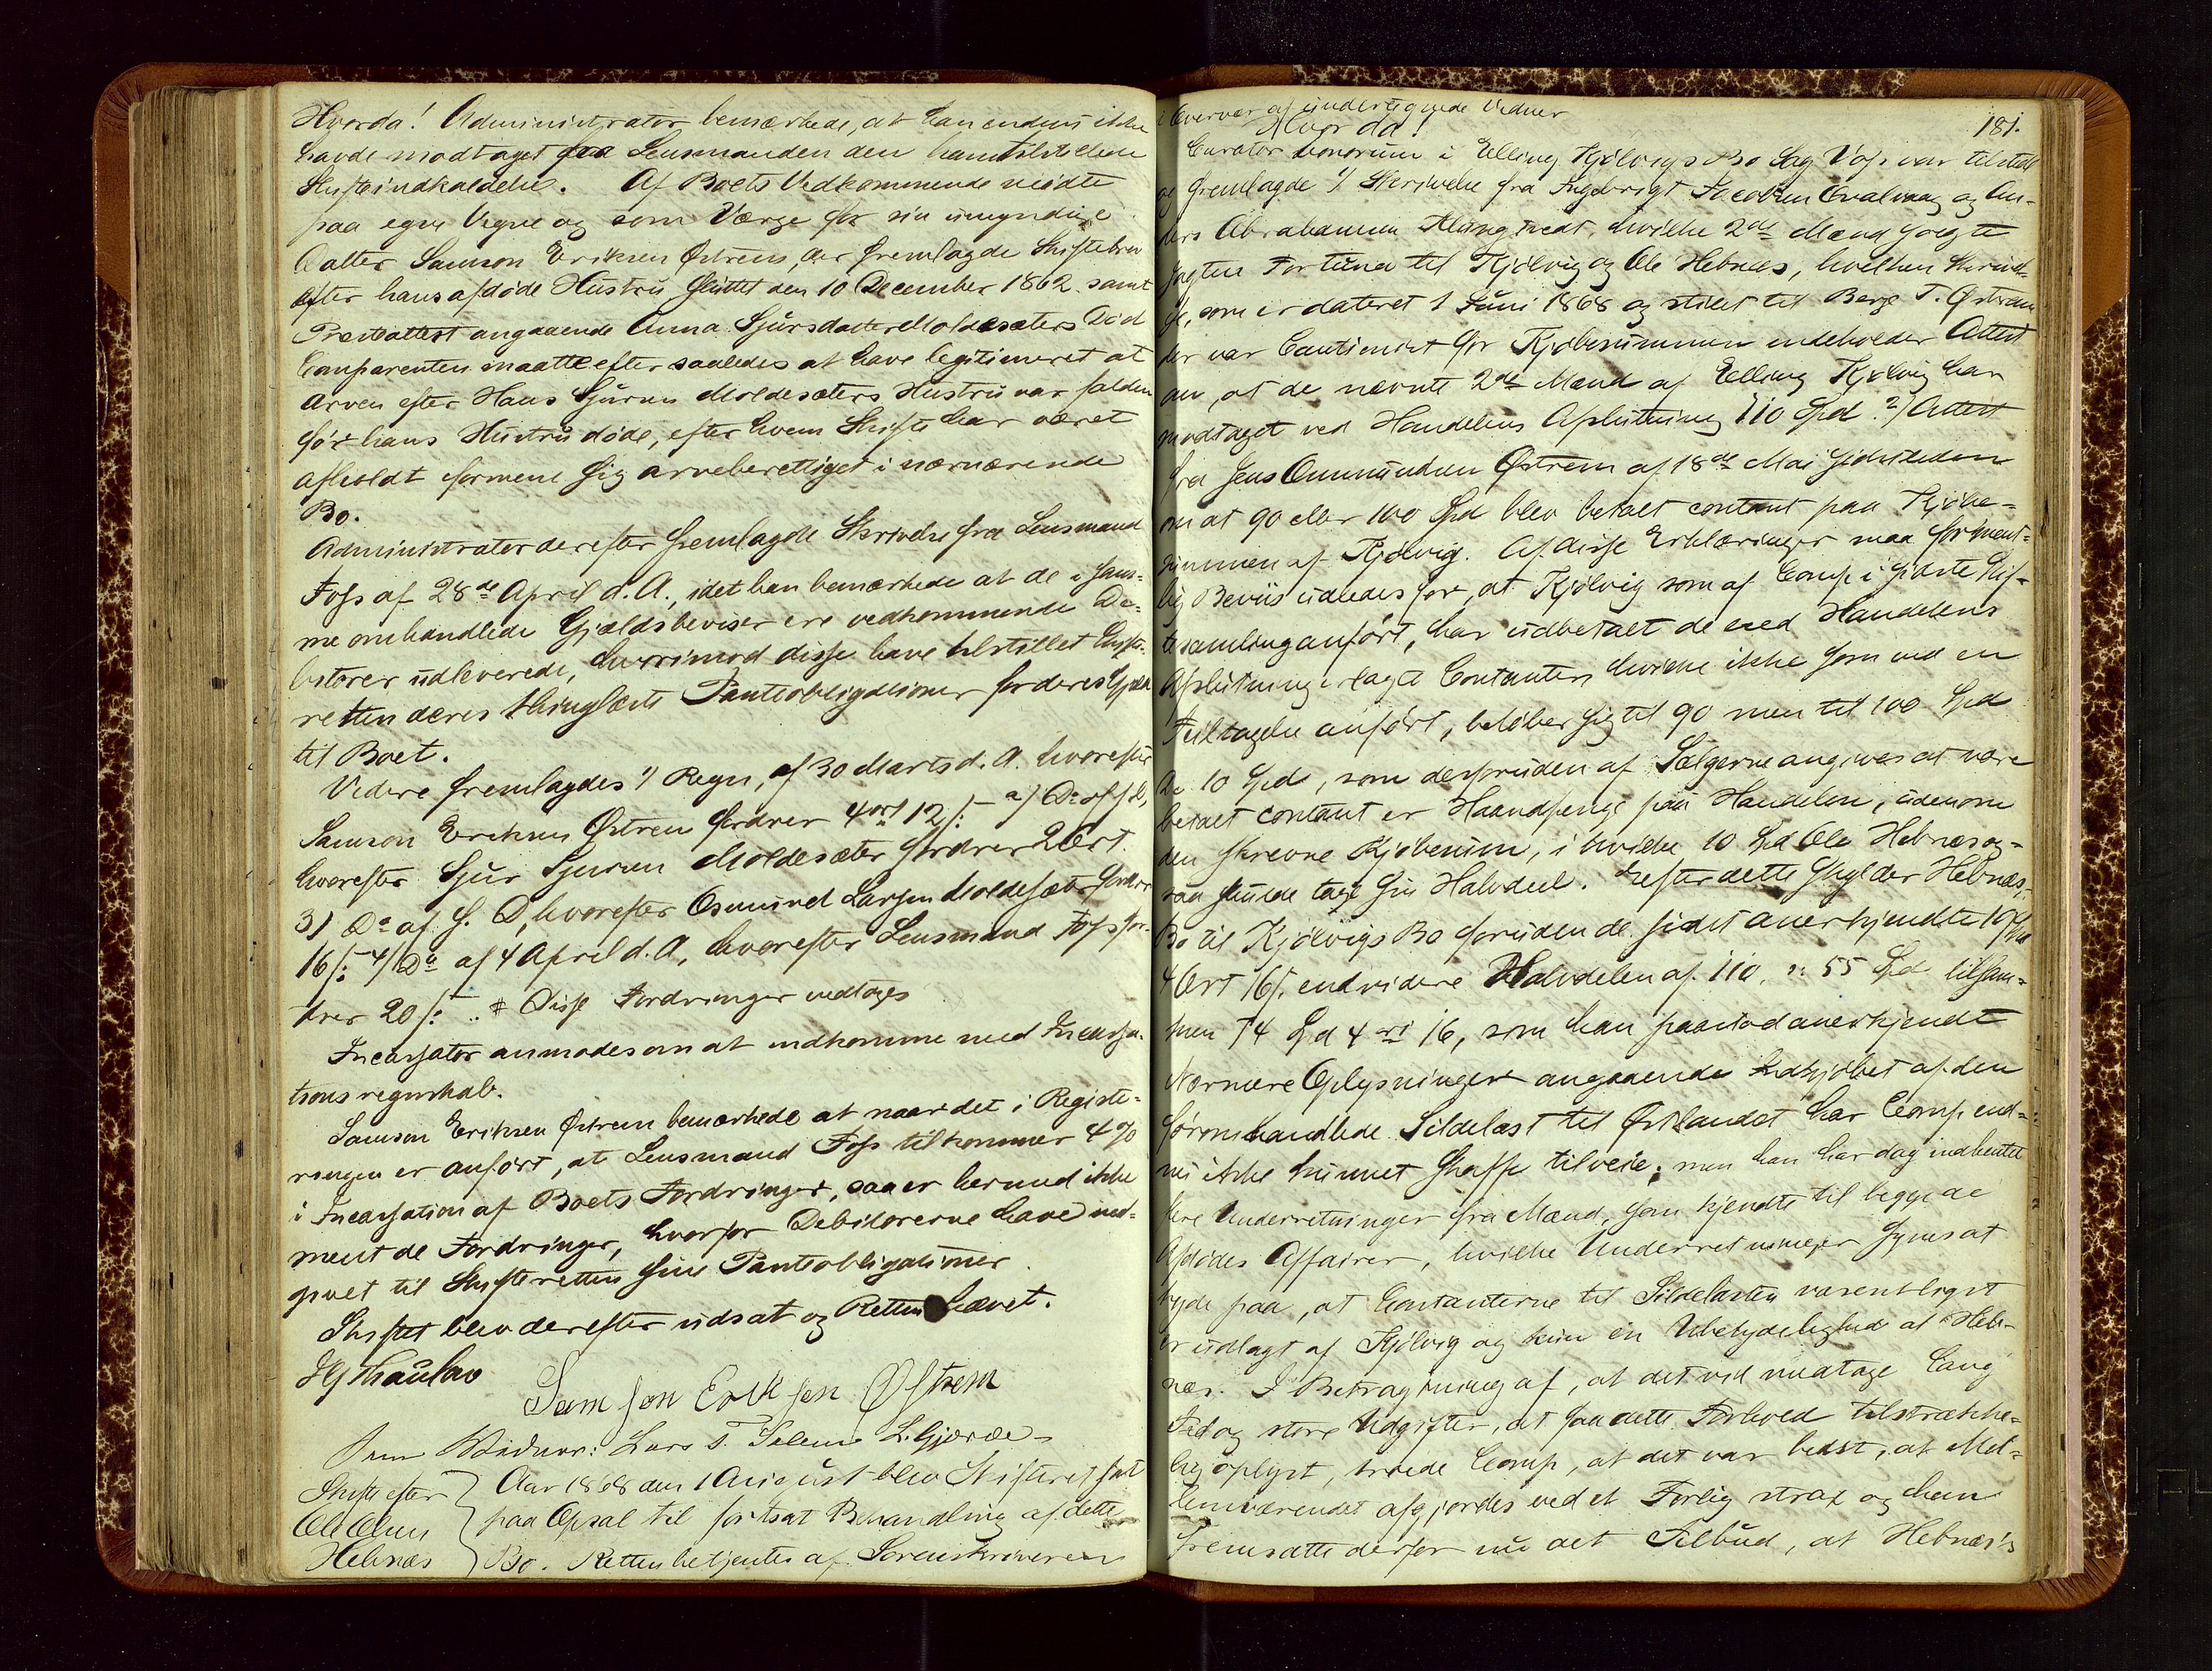 Hvorda! Administrator bemærkede, at han endnu ikke
havde modtaget fra Lensmanden den ham tilstillede
Skifteindkaldelse. Af Boets Vedkommende mødte
paa egne Vegne og som Værge for sin umyndige
Datter Samson Eriksen Østrem, der fremlagde Skiftebrev
efter hans afdøde Hustru sluttet den 10 December 1862 samt
Presteattest angaaende Anna Sjursdatter Moldesæters Død
Comparenten maatte efter saaledes at have legitimeret at
Arven efter Hans Sjursen Moldesæters Hustru var falden
før hans Hustru døde, efter hvem Skifte har været
afholdt formene sig arveberettiget i nærværende
Bo.
Administrator derefter fremlagde Skrivelse fra Lensmand
Foss af 28de April d. A., idet han bemærkede at de i sam-
me omhandlede Gjældsbeviser ere vedkommende De-
bitorer udleverede, hvorimod disse have tilstillet Skifte-
retten deres thinglæste Panteobligationer for deres Gjæld
til Boet.
Videre fremlagdes 1/ Regn, af 30 Marts d. A. hvorefter
Samson Eriksen Østrem fordrer 4 ort 12 s: 2/ Do af s. D,
hvorefter Sjur Sjursen Moldesæter fordrer 2 Ort.
3) Do af s. D, hvorefter Osmund Larsen Moldesæter fordrer
16 s: 4/ Do af 4 April d. A, hvorefter Lensmand Foss for-
drer 20 s: Disse Fordringer vedtoges
Incassator anmodes om at indkomme med Incassa-
tions regnskab.
Samson Eriksen Østrem bemærkede at naar det i Registe-
ringen er anført, at Lensmand Foss tilkommer 4 %
i Incassation af Boets Fordringer, saa er hermed ikke
ment de Fordringer, hvorfor Debitorerne have ind-
givet til Skifteretten sine Panteobligationer
Skiftet blev derefter udsat og Retten hævet.
Thaulow
Samson Eriksen Østrem
Som Vidner: Lars T. Gjerde
Skifte efter Aar 1868 den 1 August blev Skifteret sat
Ole Olsen paa Opsal til fortsat Behandling af dette
Hebnæs Bo. Retten betjentes af Sorenskriveren
181.
i Overvær af undertegnede Vidner
Hvorda!
Curator bonorum i Elling Kjølvigs Bo Sag Voss var tilstede
og fremlagde 1/ Skrivelse fra Ingebrigt Jacobsen og An-
ders Abrahamsen hvilke 2de Mænd solgte
Jagten Fortuna til Kjølvig og Ole Hebnæs, hvilken Skrivel-
se, som er dateret 1 Juni 1868 og stilet til Berge T. Østrem
der var Cautionist for Kjøbesummen indeholder Attest
om, at de nævnte 2de Mænd af Elling Kjølvig har
modtaget ved Handelens Afslutning 110 Spd. 2/ Attest
fra Jens Ommundsen Østrem af 18de Mai sidstleden
om at 90 eller 100 Spd blev betalt contant paa Kjøbe-
summen af Kjølvig. Af disse Erklæringer maa forment-
lig Beviis udledes for, at Kjølvig som af Comp i sidste Skif-
tesamling anført, har udbetalt de ved Handelens
Afslutning erlagte Contanter, hvilke ikke som ved en
Feiltagelse anført, beløber sig til 90 men til 100 Spd
De 10 Spd, som desforuden af Sælgerne angives at være
betalt contant er Haandpenge paa Handelen, udenom
den skrevne Kjøbesum, i hvilke 10 Spd Ole Hebnæs og-
saa skulde tage sin Halvdeel. Efter dette skylder Hebnæs
Bo til Kjølvigs Bo foruden de sidst anerkjendte 19 Spd
4 Ort 16 s. endvidere Halvdelen af 110, ɔ: 55 Spd tilsam-
men 74 Spd 4 ort 16, som han paastod anerkjendt
Nærmere Oplysninger angaaende Indkjøbet af den
før omhandlede Sildelast til Østlandet har Comp end-
nu ikke kunnet skaffe tilveie; men han har dog indhentet
flere Underretninger fra Mænd, som kjendte til begge de
Afdødes Affairer, hvilke Underretninger synes at
tyde paa, at Contanterne til Sildelasten væsentligst
er udlagt af Kjølvig og kun en Ubetydelighed af Heb-
næs. I Betragtning af, at det vil medtage lang
Tid og store Udgifter, at faa dette Forhold tilstrække-
lig oplyst, troede Comp, at det var bedst, at Mel-
lemværendet afgjordes ved et Forlig strax og han
fremsatte derfor nu det Tilbud, at Hebnæs's